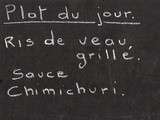 Plat du jour.
Ris de veau
grillé.
Sauce
Chimichuri.